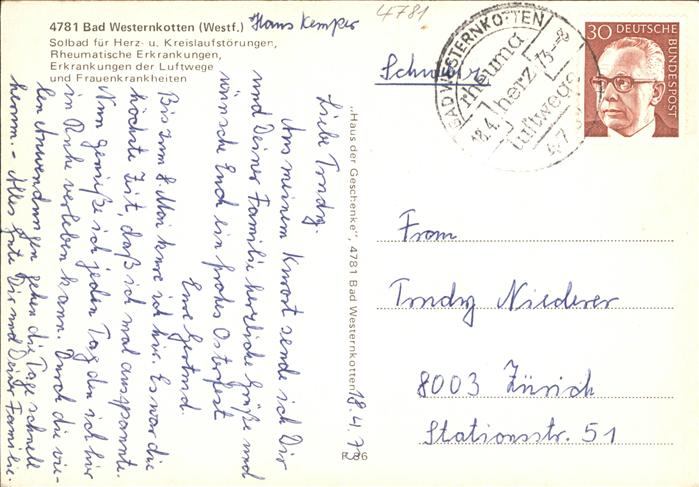 4781 Bad Westernkotten (Westf.)
Solbad für Herz- u. Kreislaufstörungen,
Rheumatische Erkrankungen,
Erkrankungen der Luftwege
und Frauenkrankheiten
Hans Kemper
4781
Schweiz
BAD WESTERNKOTTEN
rheuma
herz
luftwege
18.4. 73-8
4781
30 DEUTSCHE
BUNDESPOST
Liebe Trudy.
Aus meinem Kurort sende ich Dir
und Deiner Familie herzliche Grüße und
wünsche Euch ein frohes Osterfest
Eure Gertrud
Bis zum 8. Mai kure ich hier. Es war die
höchste Zeit, daß ich mal ausspannte.
Nun genieße ich jeden Tag den ich hier
in Ruhe verleben kann. Durch die vie-
len Anwendungen gehen die Tage schnell
herum. - Alles Gute Dir und Deiner Familie.
18.4.7
„Haus der Geschenke", 4781 Bad Westernkotten
R 86
Frau
Trudy Niederer
8003 Zürich
Stationsstr. 51